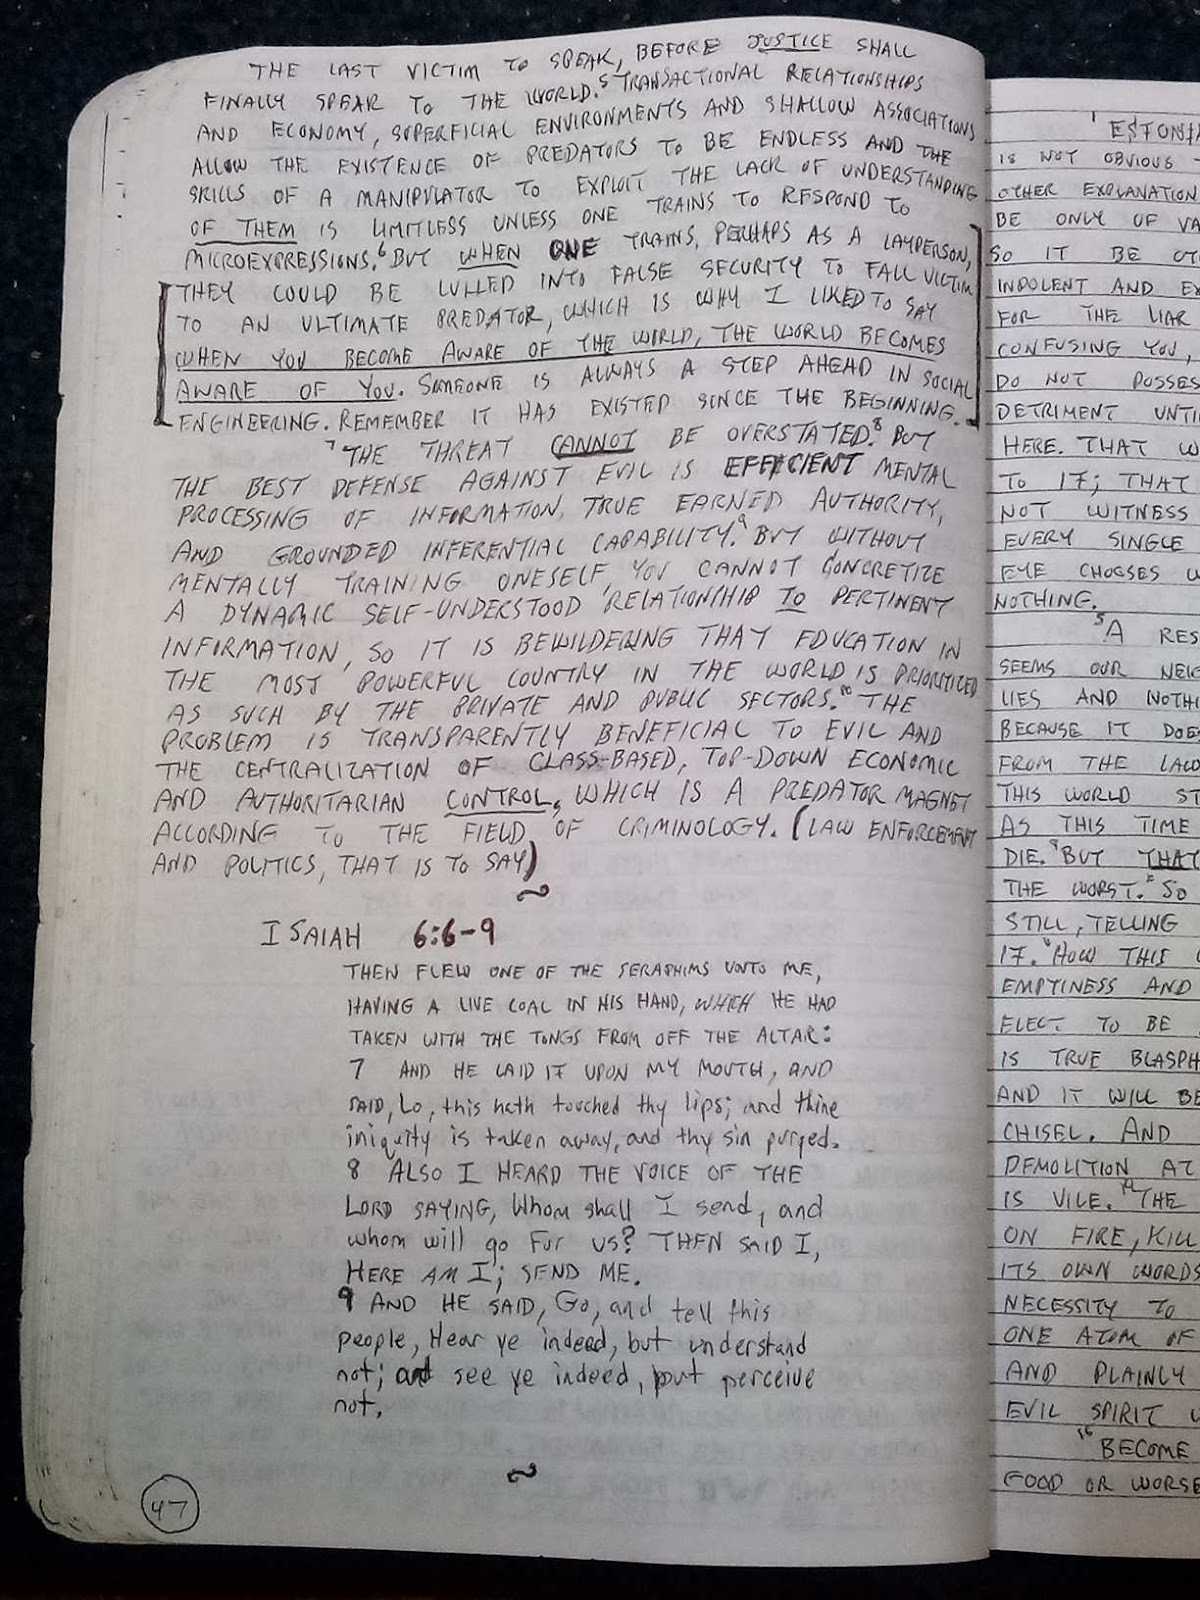 THE LAST VICTIM TO SPEAK, BEFORE JUSTICE SHALL
FINALLY SPEAK TO THE WORLD. 5 TRANSACTIONAL RELATIONSHIPS
AND ECONOMY, SUPERFICIAL ENVIRONMENTS AND SHALLOW ASSOCIATIONS
ALLOW THE EXISTENCE OF PREDATORS TO BE ENDLESS AND THE
SKILLS OF A MANIPULATOR TO EXPLOIT THE LACK OF UNDERSTANDING
OF THEM IS LIMITLESS UNLESS ONE TRAINS TO RESPOND TO
MICROEXPRESSIONS. 6 BUT WHEN ONE TRAINS, PERHAPS AS A LAYPERSON,
THEY COULD BE LULLED INTO FALSE SECURITY TO FALL VICTIM
TO AN ULTIMATE PREDATOR, WHICH IS WHY I LIKED TO SAY
WHEN YOU BECOME AWARE OF THE WORLD, THE WORLD BECOMES
AWARE OF YOU. SOMEONE IS ALWAYS A STEP AHEAD IN SOCIAL
ENGINEERING. REMEMBER IT HAS EXISTED SINCE THE BEGINNING.
7 THE THREAT CANNOT BE OVERSTATED. 8 BUT
THE BEST DEFENSE AGAINST EVIL IS EFFICIENT MENTAL
PROCESSING OF INFORMATION, TRUE EARNED AUTHORITY,
AND GROUNDED INFERENTIAL CAPABILITY. 9 BUT WITHOUT
MENTALLY TRAINING ONESELF, YOU CANNOT CONCRETIZE
A DYNAMIC SELF-UNDERSTOOD RELATIONSHIP TO PERTINENT
INFORMATION, SO IT IS BEWILDERING THAT EDUCATION IN
THE MOST POWERFUL COUNTRY IN THE WORLD IS PRIORITIZED
AS SUCH BY THE PRIVATE AND PUBLIC SECTORS. 10 THE
PROBLEM IS TRANSPARENTLY BENEFICIAL TO EVIL AND
THE CENTRALIZATION OF CLASS-BASED, TOP-DOWN ECONOMIC
AND AUTHORITARIAN CONTROL, WHICH IS A PREDATOR MAGNET
ACCORDING TO THE FIELD OF CRIMINOLOGY. (LAW ENFORCEMENT
AND POLITICS, THAT IS TO SAY)
~
ISAIAH 6:6-9
THEN FLEW ONE OF THE SERAPHIMS UNTO ME,
HAVING A LIVE COAL IN HIS HAND, WHICH HE HAD
TAKEN WITH THE TONGS FROM OFF THE ALTAR:
7 AND HE LAID IT UPON MY MOUTH, AND
SAID, Lo, this hath touched thy lips; and thine
iniquity is taken away, and thy sin purged.
8 ALSO I HEARD THE VOICE OF THE
LORD SAYING, Whom shall I send, and
whom will go for us? THEN SAID I,
HERE AM I; SEND ME.
9 AND HE SAID, Go, and tell this
people, Hear ye indeed, but understand
not; and see ye indeed, but perceive
not.
~
47
IS NOT OBVIOUS
OTHER EXPLANATION
BE ONLY OF VA
SO IT BE
INDOLENT AND
FOR THE LIAR
CONFUSING YOU,
DO NOT POSSES
DETRIMENT UNTI
HERE. THAT W
TO 17; THAT
NOT WITNESS
EVERY SINGLE
EYE CHOOSES
NOTHING.
5 A RES
SEEMS OUR NEIG
LIES AND NOTHI
BECAUSE IT DOE
FROM THE
THIS WORLD ST
AS THIS TIME
DIE. BUT THAT
THE WORST. SO
STILL, TELLING
17. HOW THIS
EMPTINESS AND
ELECT TO BE
IS TRUE BLASPH
AND IT WILL BE
CHISEL. AND
DEMOLITION AT
IS VILE. THE
ON FIRE, KILL
ITS OWN WORDS
NECESSITY TO
ONE ATOM OF
AND PLAINLY
EVIL SPIRIT
BECOME
GOOD OR WORSE